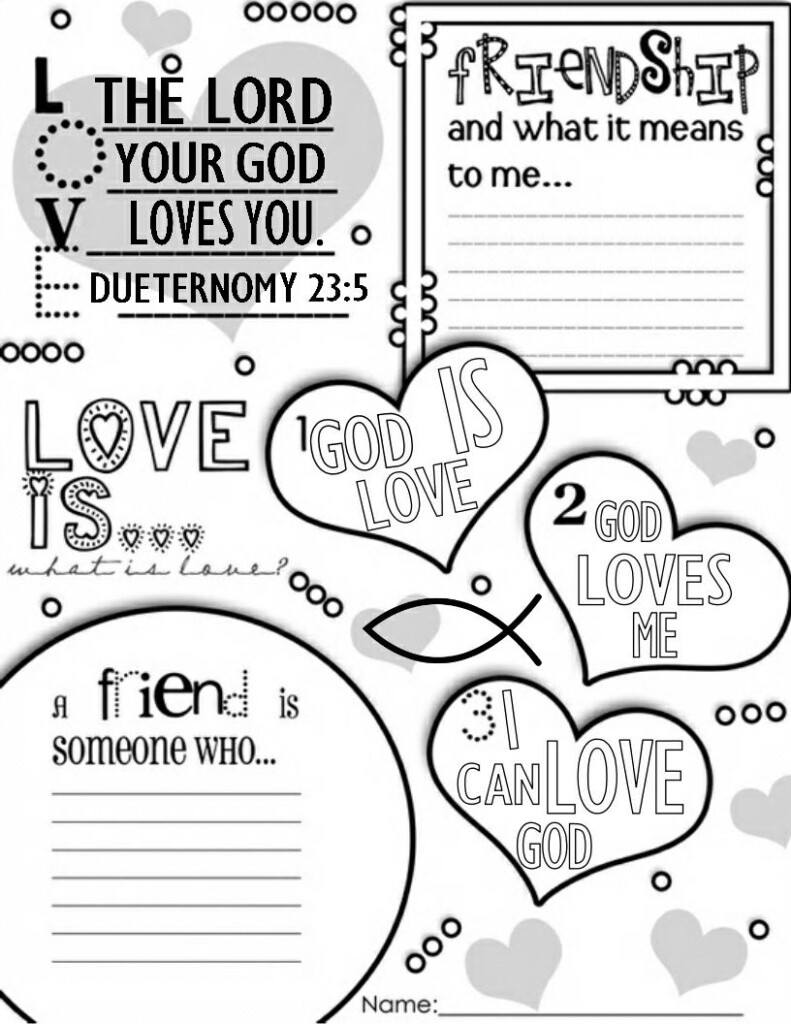 LOVE
THE LORD
YOUR GOD
LOVES YOU.
DUETERNOMY 23:5
fRIeNDShIP
and what it means
to me...
LOVE
iS...
what is love?
1 GOD IS
LOVE
2 GOD
LOVES
ME
3 I
CAN LOVE
GOD
A friend is
someone WHO...
Name: